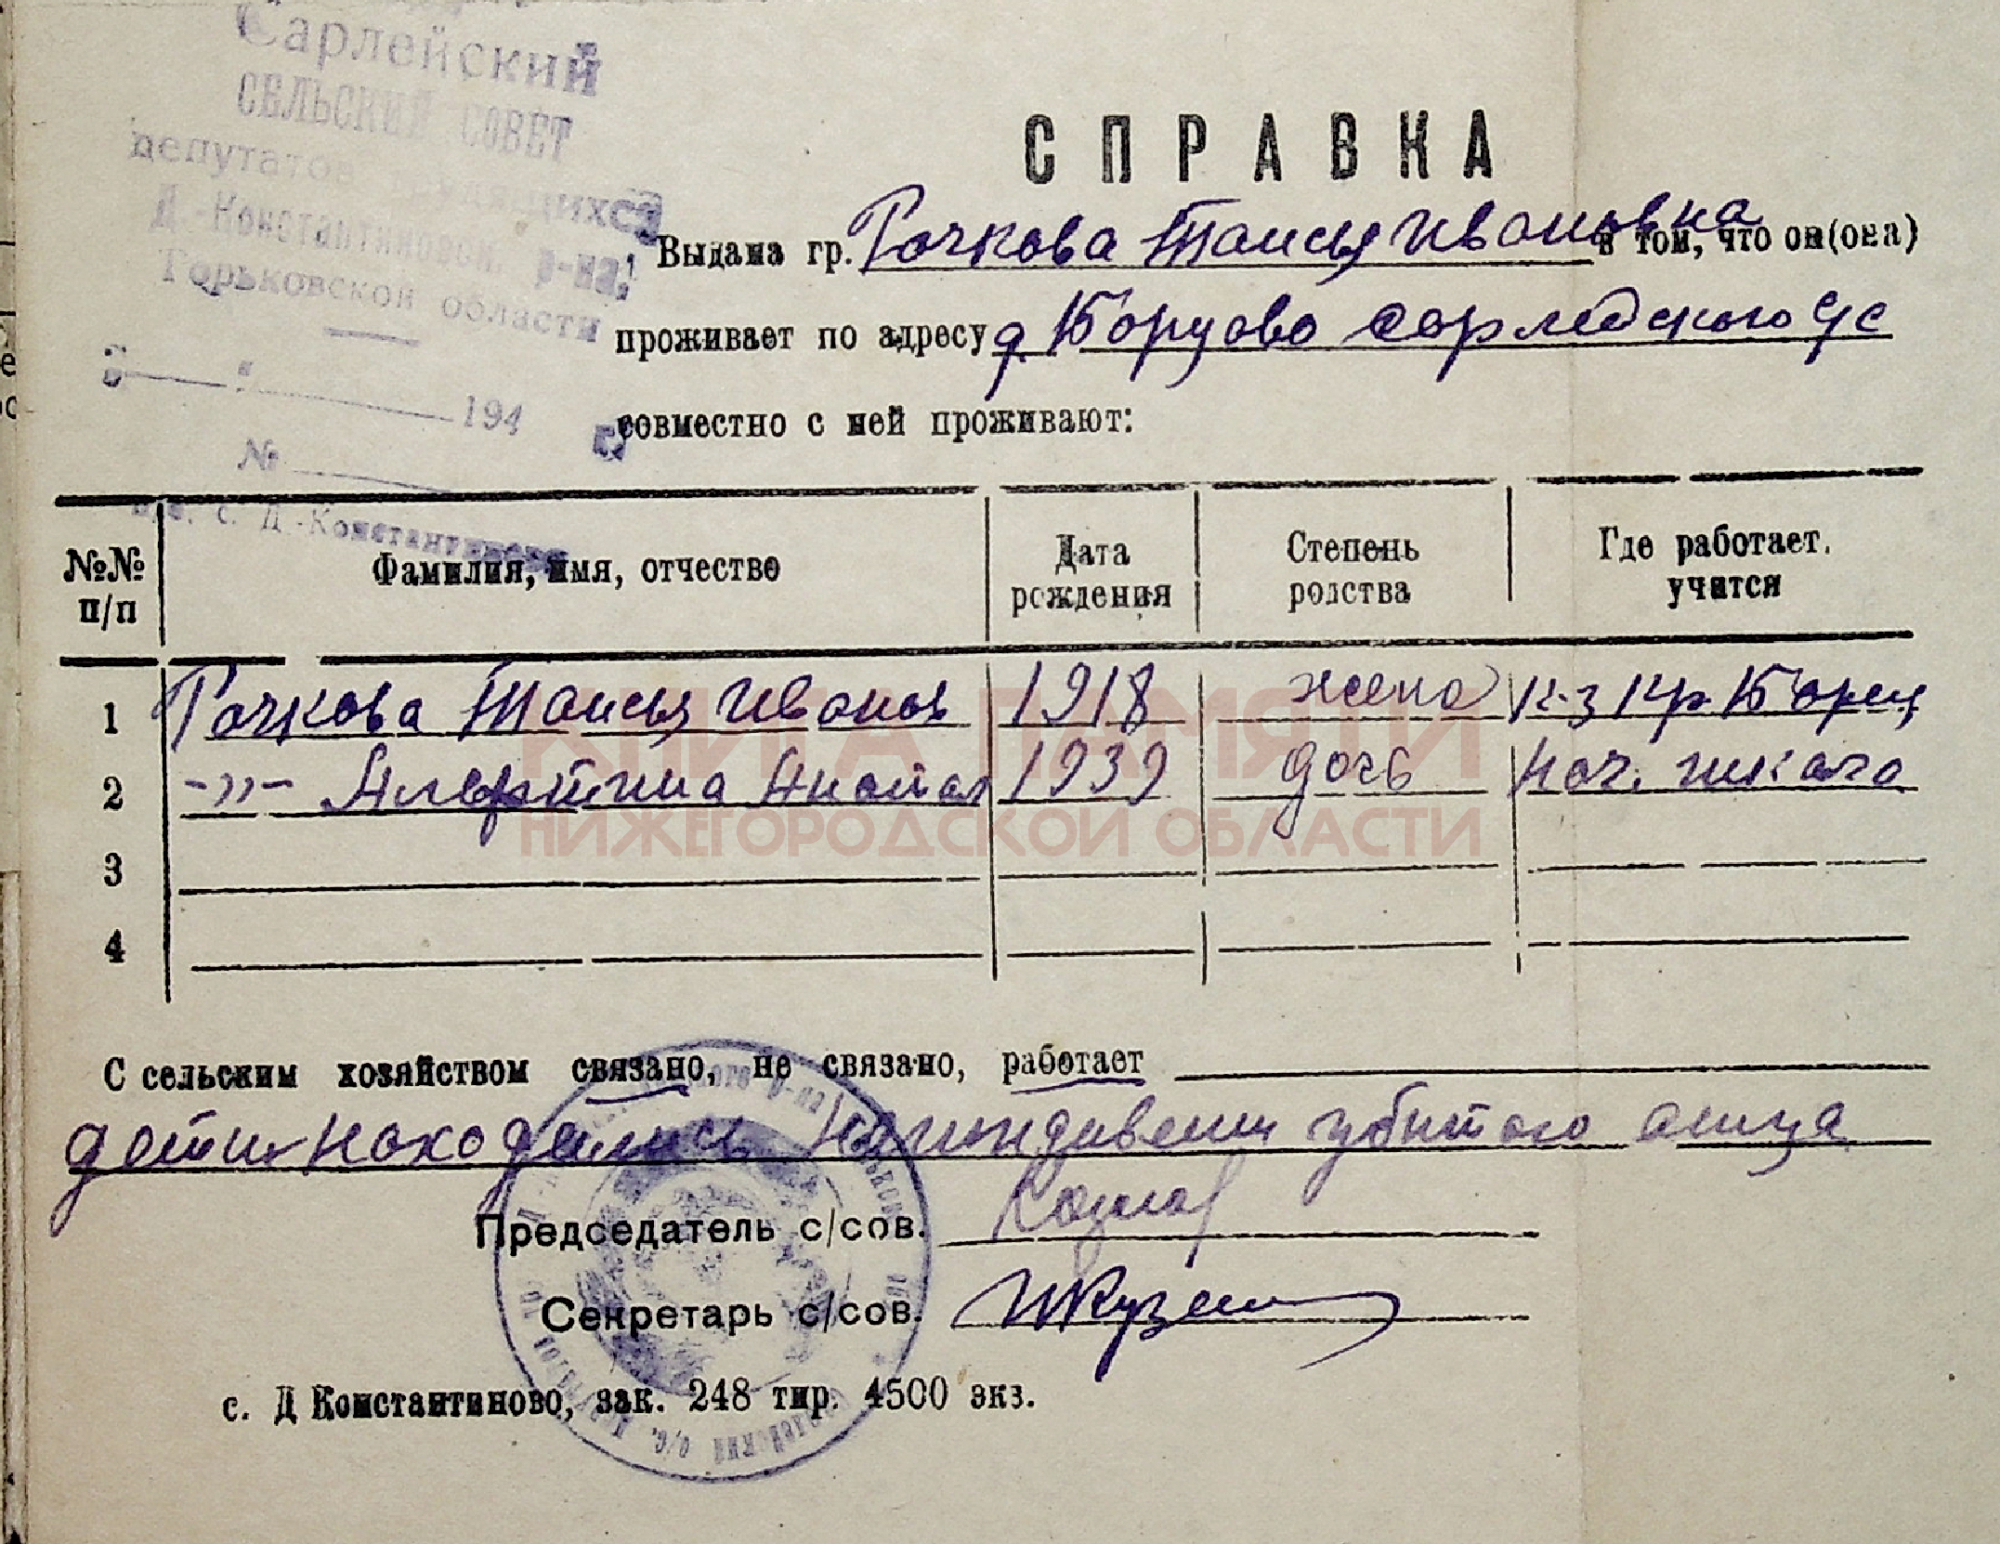 Сарлейский
СЕЛЬСКИЙ СОВЕТ
депутатов трудящихся
Д.-Константиновск. р-на,
Горьковской области
194 г.
№
п/о. с. Д.-Константиново
СПРАВКА
Выдана гр. Рачкова Таисья Ивановна в том, что он(она)
проживает по адресу д Борцово Сарлейского с/с
совместно с ней проживают:
№№ п/п Фамилия, имя, отчество Дата рождения Степень родства Где работает, учится
1 Рачкова Таисья Иванов 1918 жена к-з Кр Борец
2 -"- Алевртина Анатол 1939 дочь нач. школа
3
4
КНИГА ПАМЯТИ
НИЖЕГОРОДСКОЙ ОБЛАСТИ
С сельским хозяйством связано, не связано, работает
дети находились на иждивении убитого отца
Председатель с/сов. Козлов
Секретарь с/сов.
с. Д Константиново, зак. 248 тир. 4500 экз.